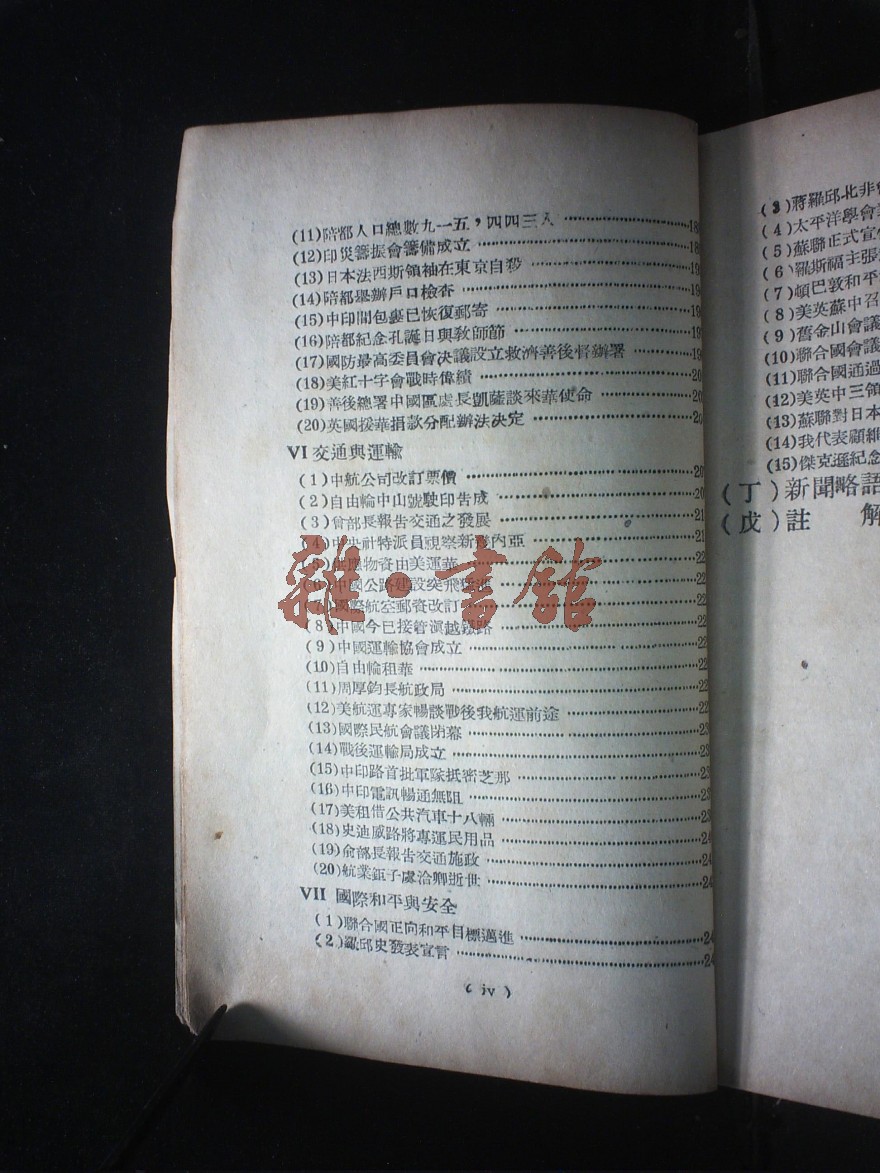 (11)陪都人口總數九一五，四四三人……18
(12)印災籌振會籌備成立……18
(13)日本法西斯領袖在東京自殺……19
(14)陪都舉辦戶口檢查……19
(15)中印間包裹已恢復郵寄……19
(16)陪都紀念孔誕日與敎師節……19
(17)國防最高委員會決議設立救濟善後督辦署……19
(18)美紅十字會戰時偉績……20
(19)善後總署中國區處長凱薩談來華使命……20
(20)英國援華捐款分配辦法決定……20
VI 交通與運輸
(1)中航公司改訂票價……20
(2)自由輪中山號駛印告成……20
(3)曾部長報告交通之發展……21
(4)中央社特派員視察新幾內亞……21
(5)供應物資由美運華……22
(6)中國公路建設突飛猛進……22
(7)國際航空郵資改訂……22
(8)中國今已接管滇越鐵路……22
(9)中國運輸協會成立……22
(10)自由輪租華……22
(11)周厚鈞長航政局……22
(12)美航運專家暢談戰後我航運前途……22
(13)國際民航會議閉幕……23
(14)戰後運輸局成立……23
(15)中印路首批軍隊抵密芝那……23
(16)中印電訊暢通無阻……23
(17)美租借公共汽車十八輛……23
(18)史迪威路將專運民用品……24
(19)俞部長報告交通施政……24
(20)航業鉅子虞洽卿逝世……24
VII 國際和平與安全
(1)聯合國正向和平目標邁進……24
(2)羅邱史發表宣言……24
( iv )
(3)蔣羅邱北非會
(4)太平洋學會
(5)蘇聯正式宣
(6)羅斯福主張
(7)頓巴敦和平
(8)美英蘇中召
(9)舊金山會議
(10)聯合國會議
(11)聯合國通過
(12)美英中三領
(13)蘇聯對日本
(14)我代表顧維
(15)傑克遜紀念
(丁)新聞略語
(戊)註 解
雜·書館